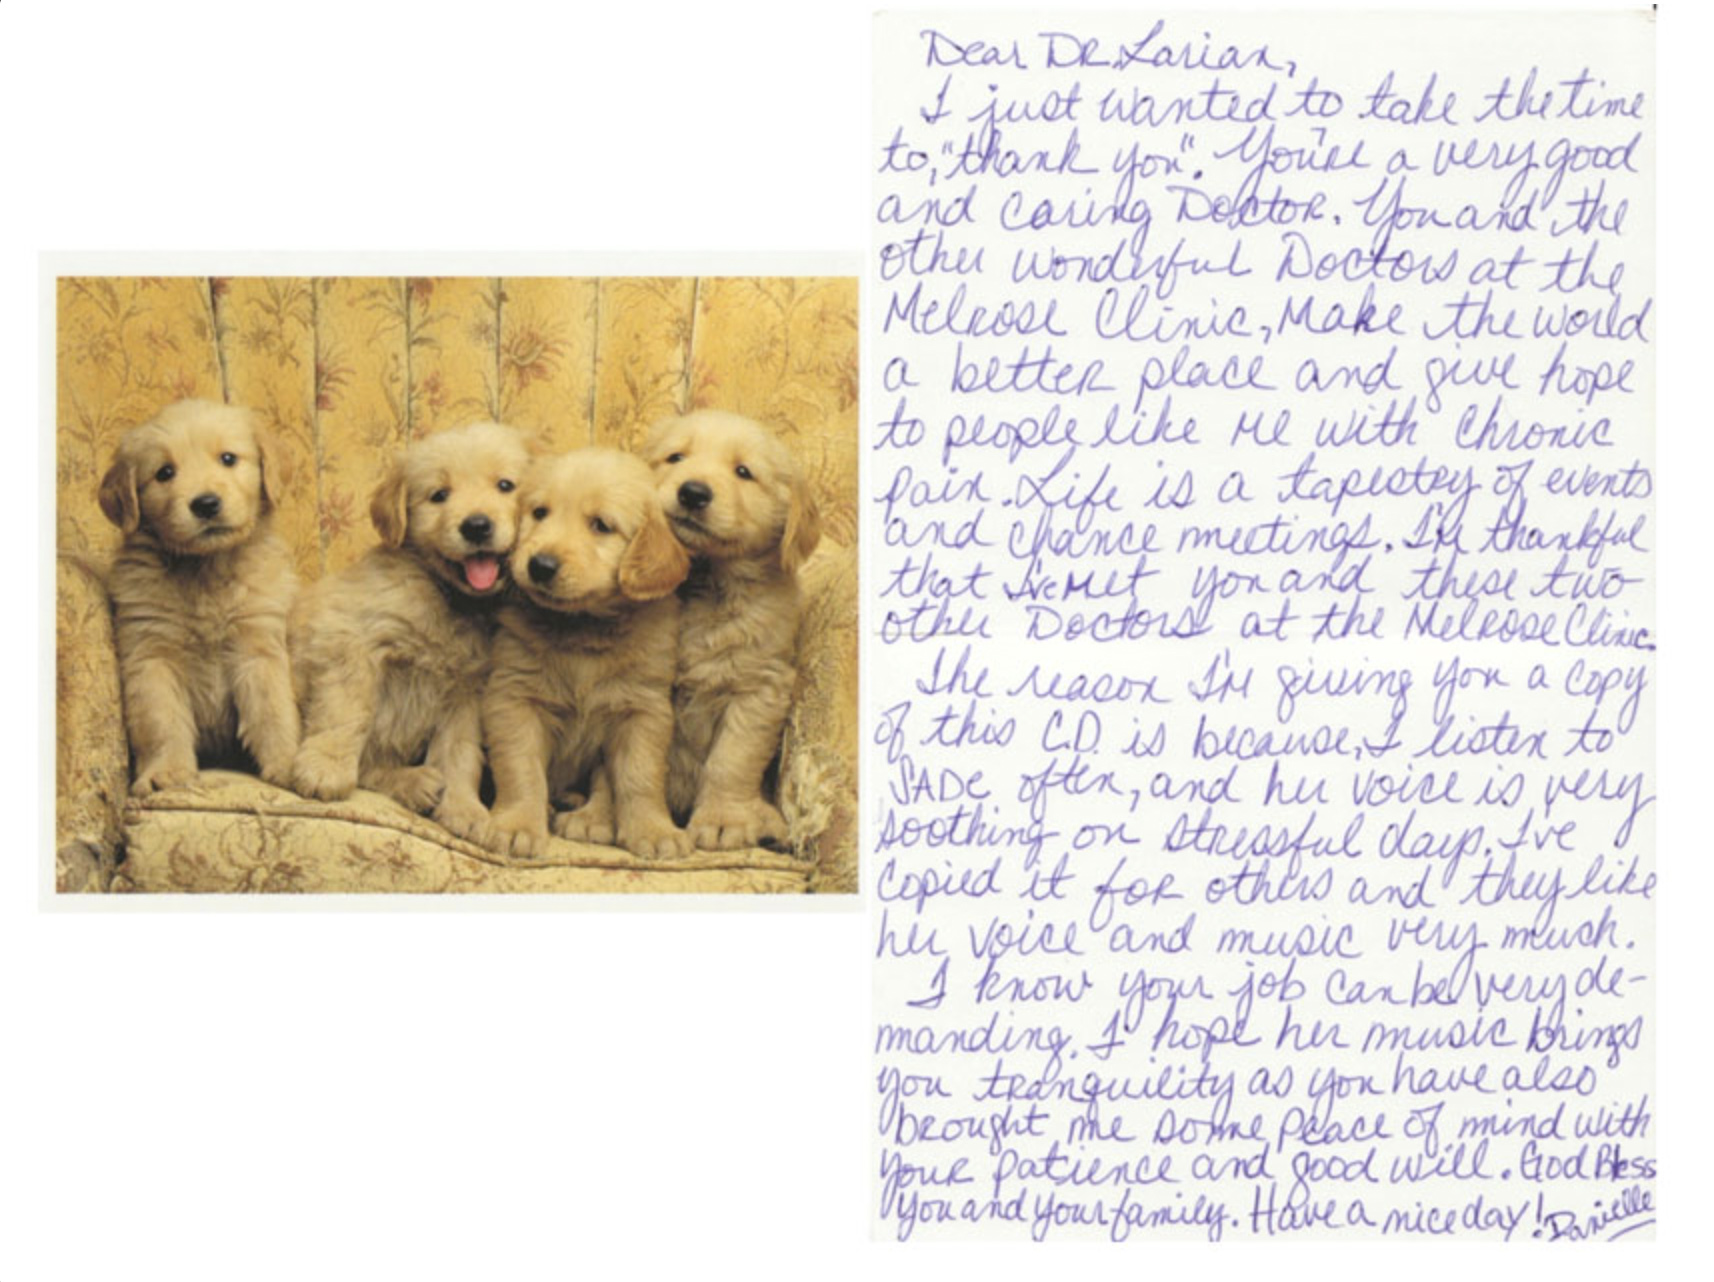 Dear DR. Larian,
I just wanted to take the time
to, "thank you". You're a very good
and caring Doctor. You and the
other wonderful Doctors at the
Melrose Clinic, Make the world
a better place and give hope
to people like me with Chronic
pain. Life is a tapestry of events
and chance meetings. I'm thankful
that I've met you and these two
other Doctors at the Melrose Clinic.
The reason I'm giving you a copy
of this C.D. is because, I listen to
SADE often, and her voice is very
soothing on stressful days. I've
copied it for others and they like
her voice and music very much.
I know your job can be very de-
manding. I hope her music brings
you tranquility as you have also
brought me some peace of mind with
your patience and good will. God Bless
You and your family. Have a nice day! Danielle